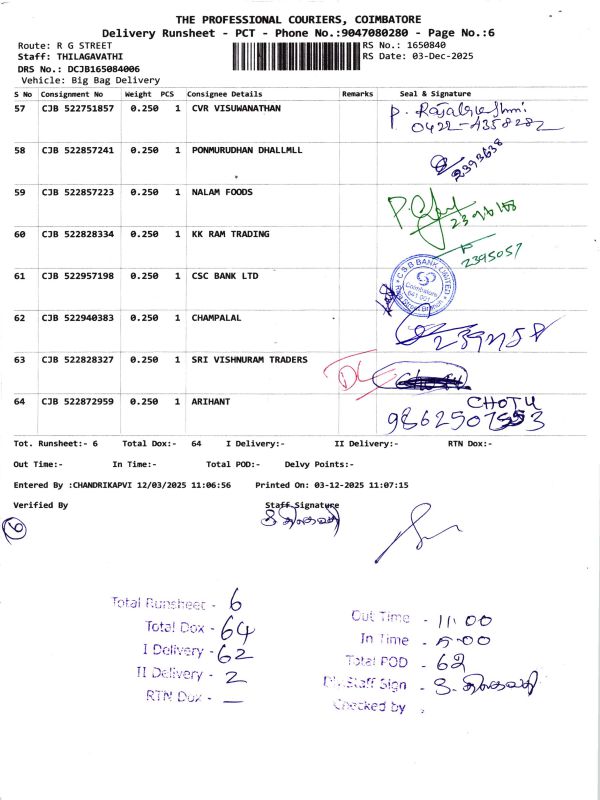 THE PROFESSIONAL COURIERS, COIMBATORE
Delivery Runsheet - PCT - Phone No.:9047080280 - Page No.:6
Route: R G STREET
RS No.: 1650840
Staff: THILAGAVATHI
RS Date: 03-Dec-2025
DRS No.: DCJB165084006
Vehicle: Big Bag Delivery
S No Consignment No Weight PCS Consignee Details Remarks Seal & Signature
57 CJB 522751857 0.250 1 CVR VISUWANATHAN
0422-4358282
58 CJB 522857241 0.250 1 PONMURUDHAN DHALLMLL
2393638
59 CJB 522857223 0.250 1 NALAM FOODS
60 CJB 522828334 0.250 1 KK RAM TRADING
2395057
61 CJB 522957198 0.250 1 CSC BANK LTD
C.S.B BANK LIMITED
Coimbatore
641 001
62 CJB 522940383 0.250 1 CHAMPALAL
63 CJB 522828327 0.250 1 SRI VISHNURAM TRADERS
DL
64 CJB 522872959 0.250 1 ARIHANT
CHOTU
Tot. Runsheet:- 6 Total Dox:- 64 I Delivery:- II Delivery:- RTN Dox:-
Out Time:- In Time:- Total POD:- Delvy Points:-
Entered By :CHANDRIKAPVI 12/03/2025 11:06:56 Printed On: 03-12-2025 11:07:15
Verified By Staff Signature
6
Total Runsheet - 6
Total Dox - 64
I Delivery - 62
II Delivery - 2
RTN Dox - —
Out Time - 11:00
In Time - 5:00
Total POD - 62
Dl. Staff Sign -
Checked by